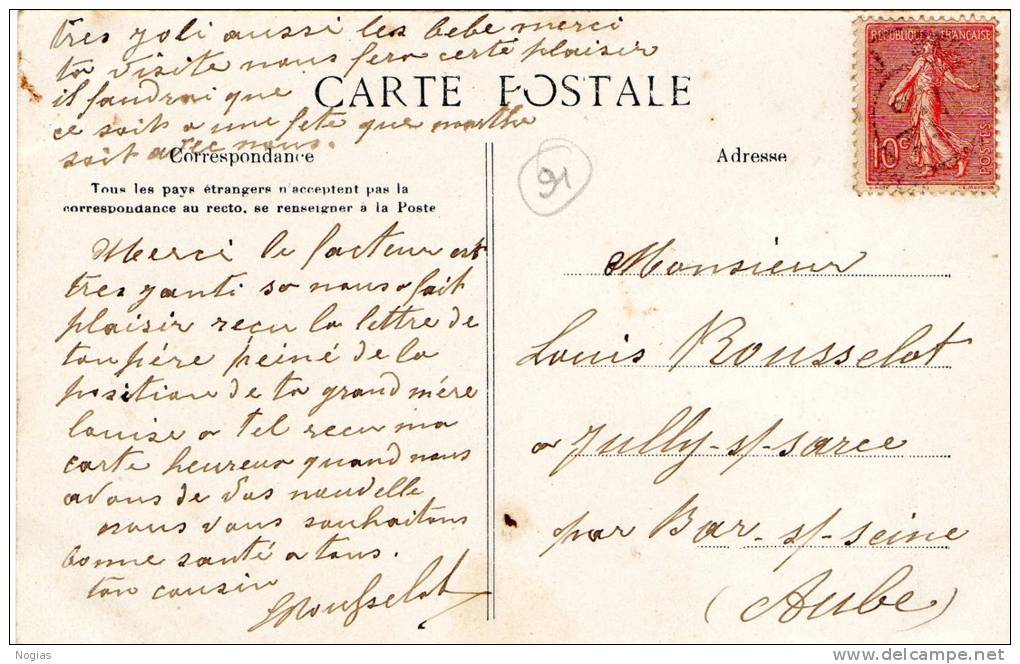 tres joli aussi les bebe merci
ta visite nous fera certe plaisir
il faudrai que
ce soit a une fete que marthe
soit avec nous.
CARTE POSTALE
Correspondance
Tous les pays étrangers n'acceptent pas la
correspondance au recto, se renseigner à la Poste
Merci le facteur est
tres janti sa nous a fait
plaisir recu la lettre de
ton père peiné de la
position de ta grand mère
louise a tel recu ma
carte heureux quand nous
avons de vos nouvelle
nous vous souhaitons
bonne santé a tous.
ton cousin
Rousselot
91
Adresse
REPUBLIQUE FRANÇAISE
10c
POSTES
Monsieur
Louis Rousselot
a Jully-s/-sarce
par Bar-s/-seine
(Aube)
Noglas
delcampe.net